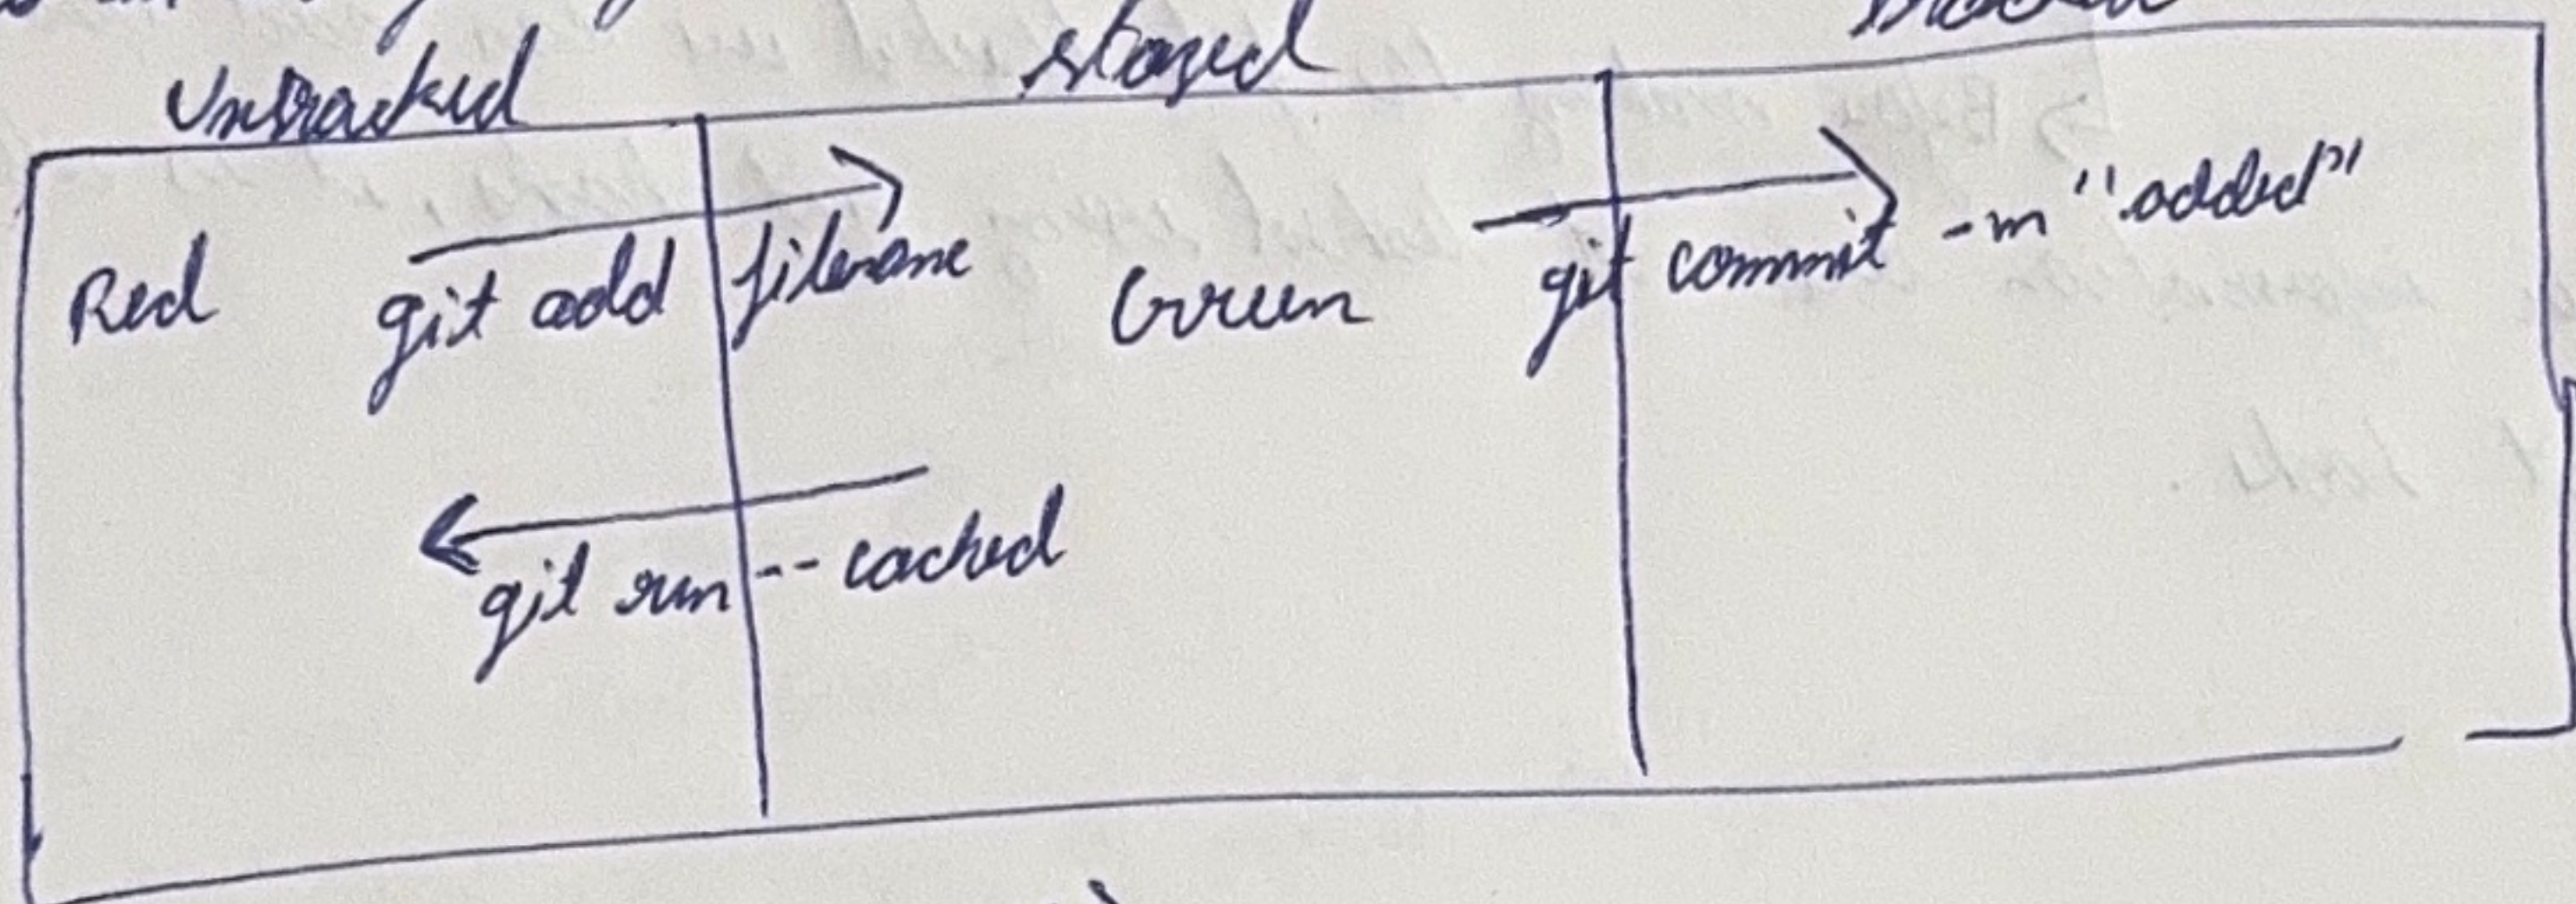 Untracked staged
Red git add filename Green git commit -m "added"
git rm --cached